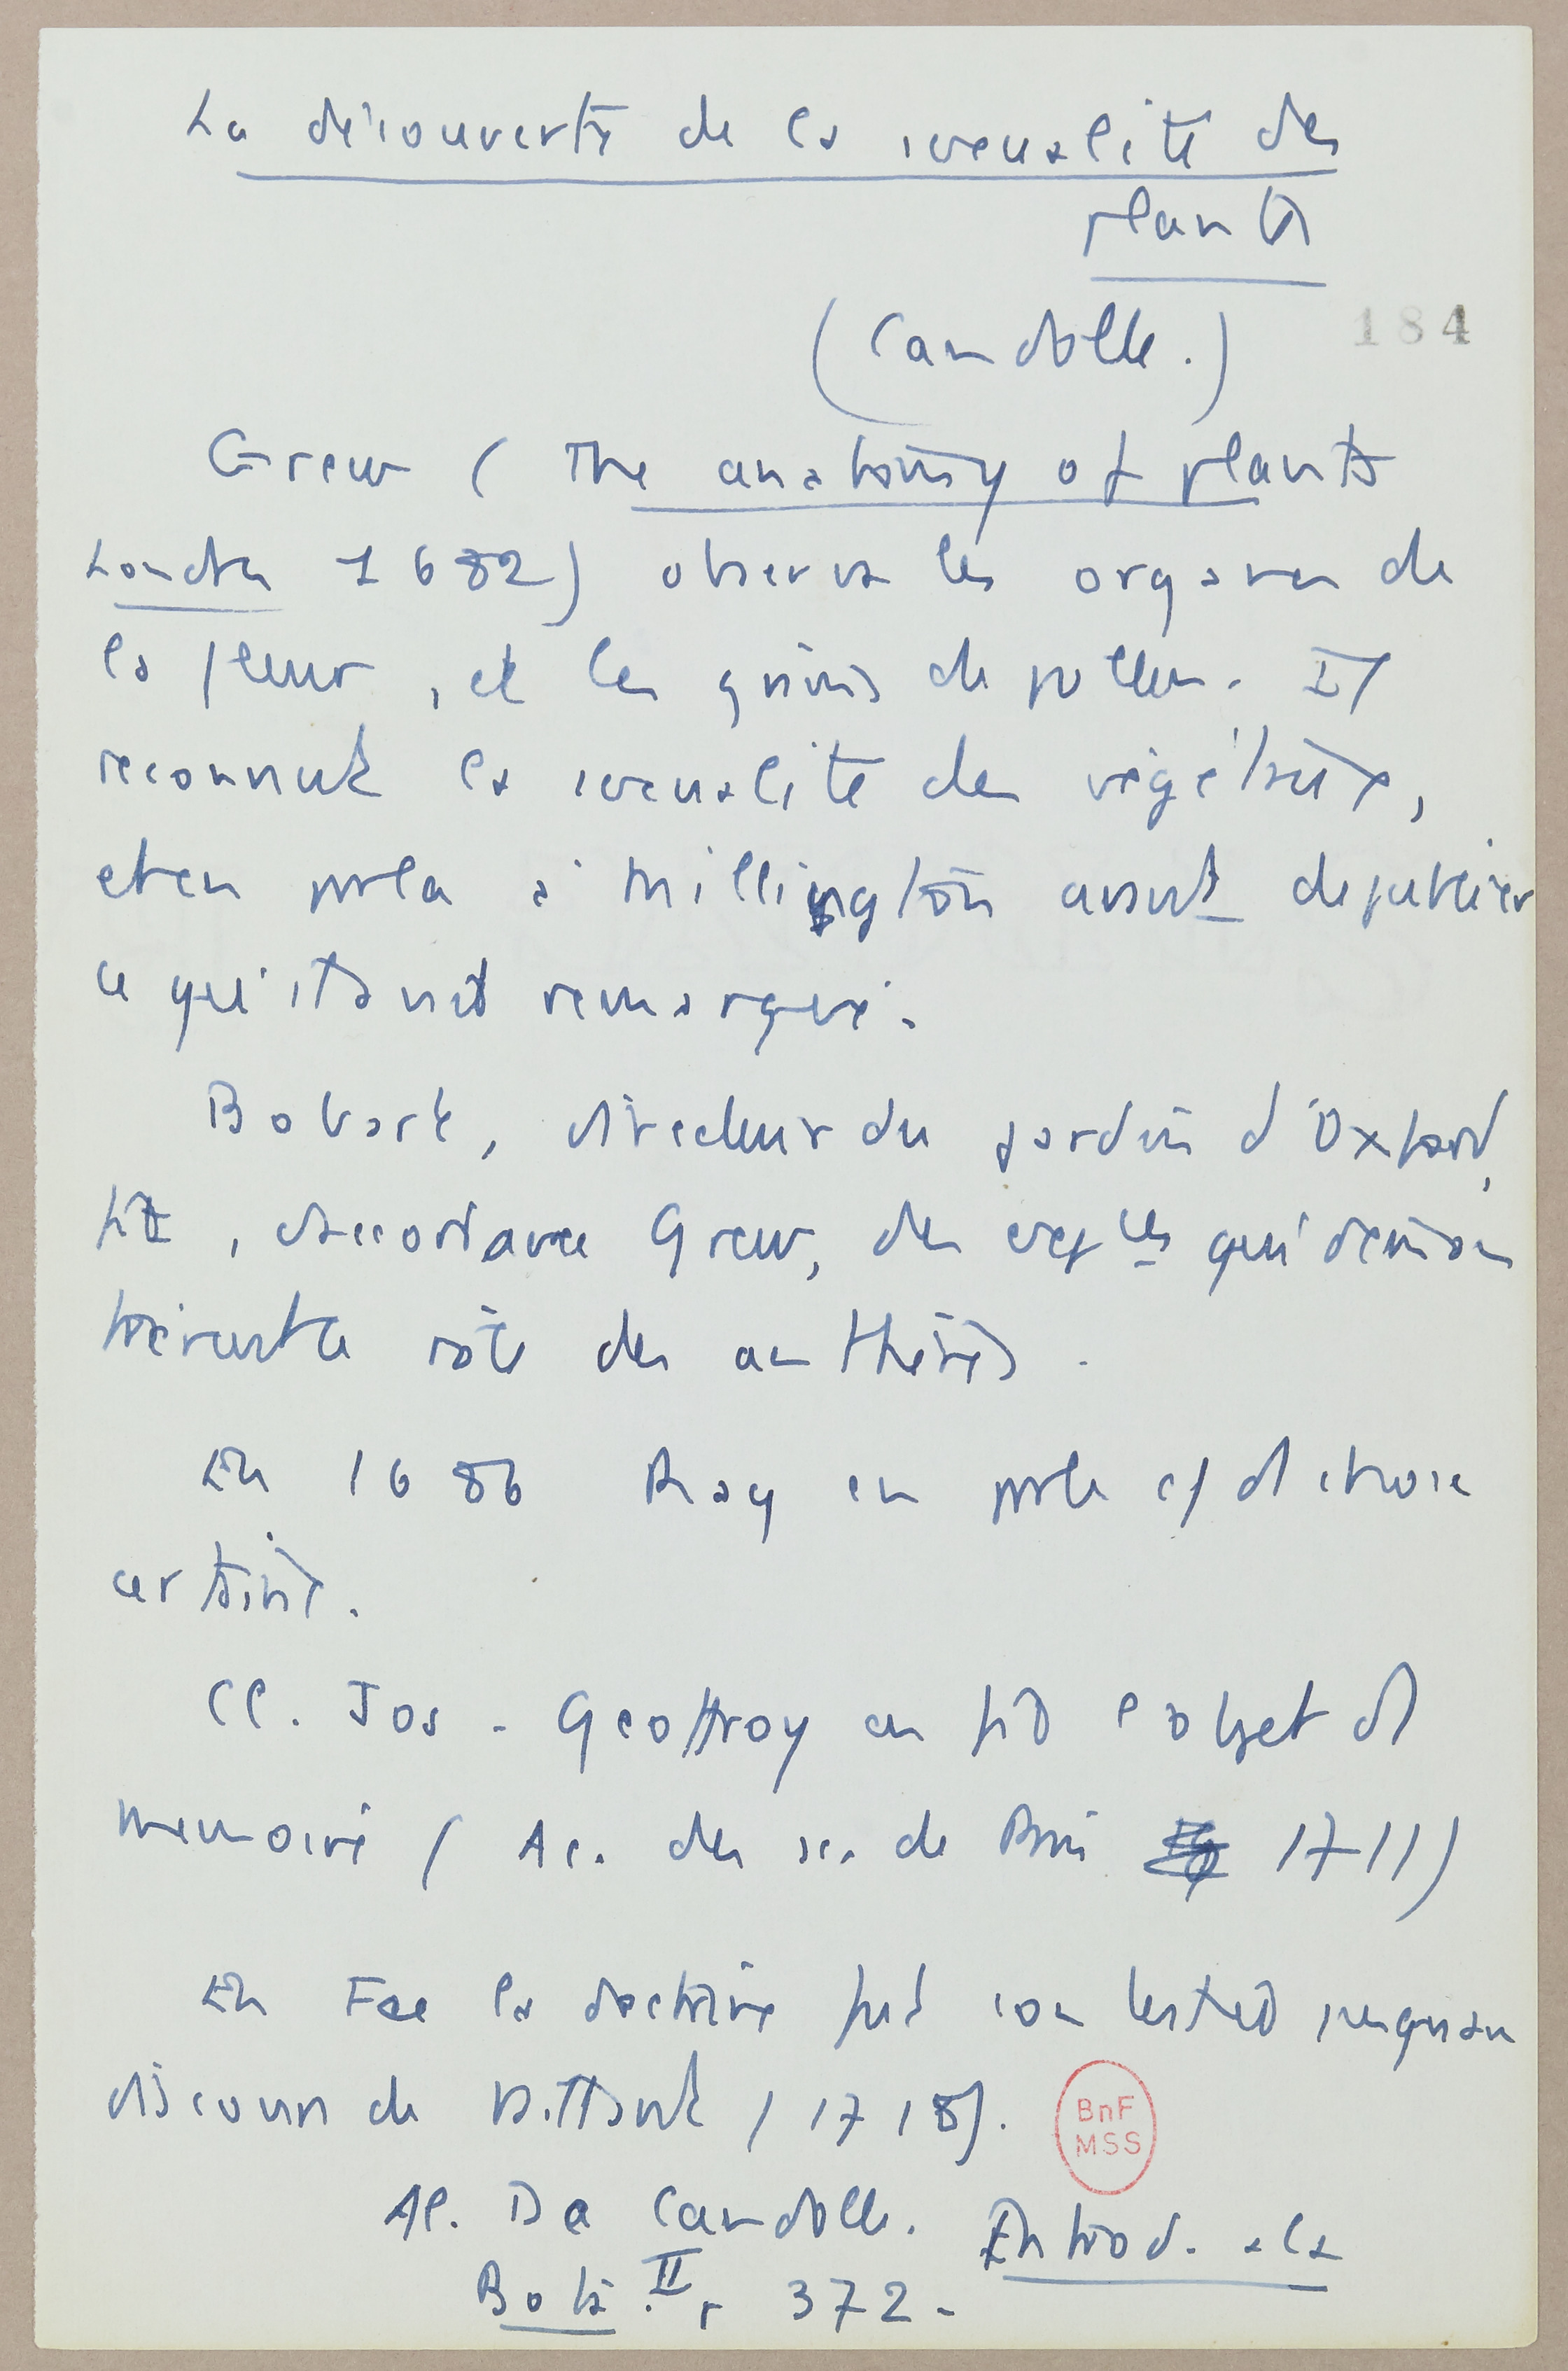 La découverte de la sexualité des
plantes
(Candolle.)
184
Grew (The anatomy of plants
Londres 1682) observa les organes de
la fleur, et les grains de pollen. Il
reconnut la sexualité des végétaux,
et en parla à Millington avant de publier
ce qu'il avait remarqué.
Bobart, directeur du jardin d'Oxford,
fit, d'accord avec Grew, des expces qui démon
trèrent le rôle des anthères.
En 1686 Ray en parle c/ d'1 chose
certaine.
Cl. Jos. Geoffroy en fit l'objet d'1
mémoire (Ac. des sc. de Paris 1711)
En Fce la doctrine fut contestée jusqu'au
discours de Vaillant (1718).
BnF
MSS
Al. De Candolle. Introd. à la
Bota. II p 372.